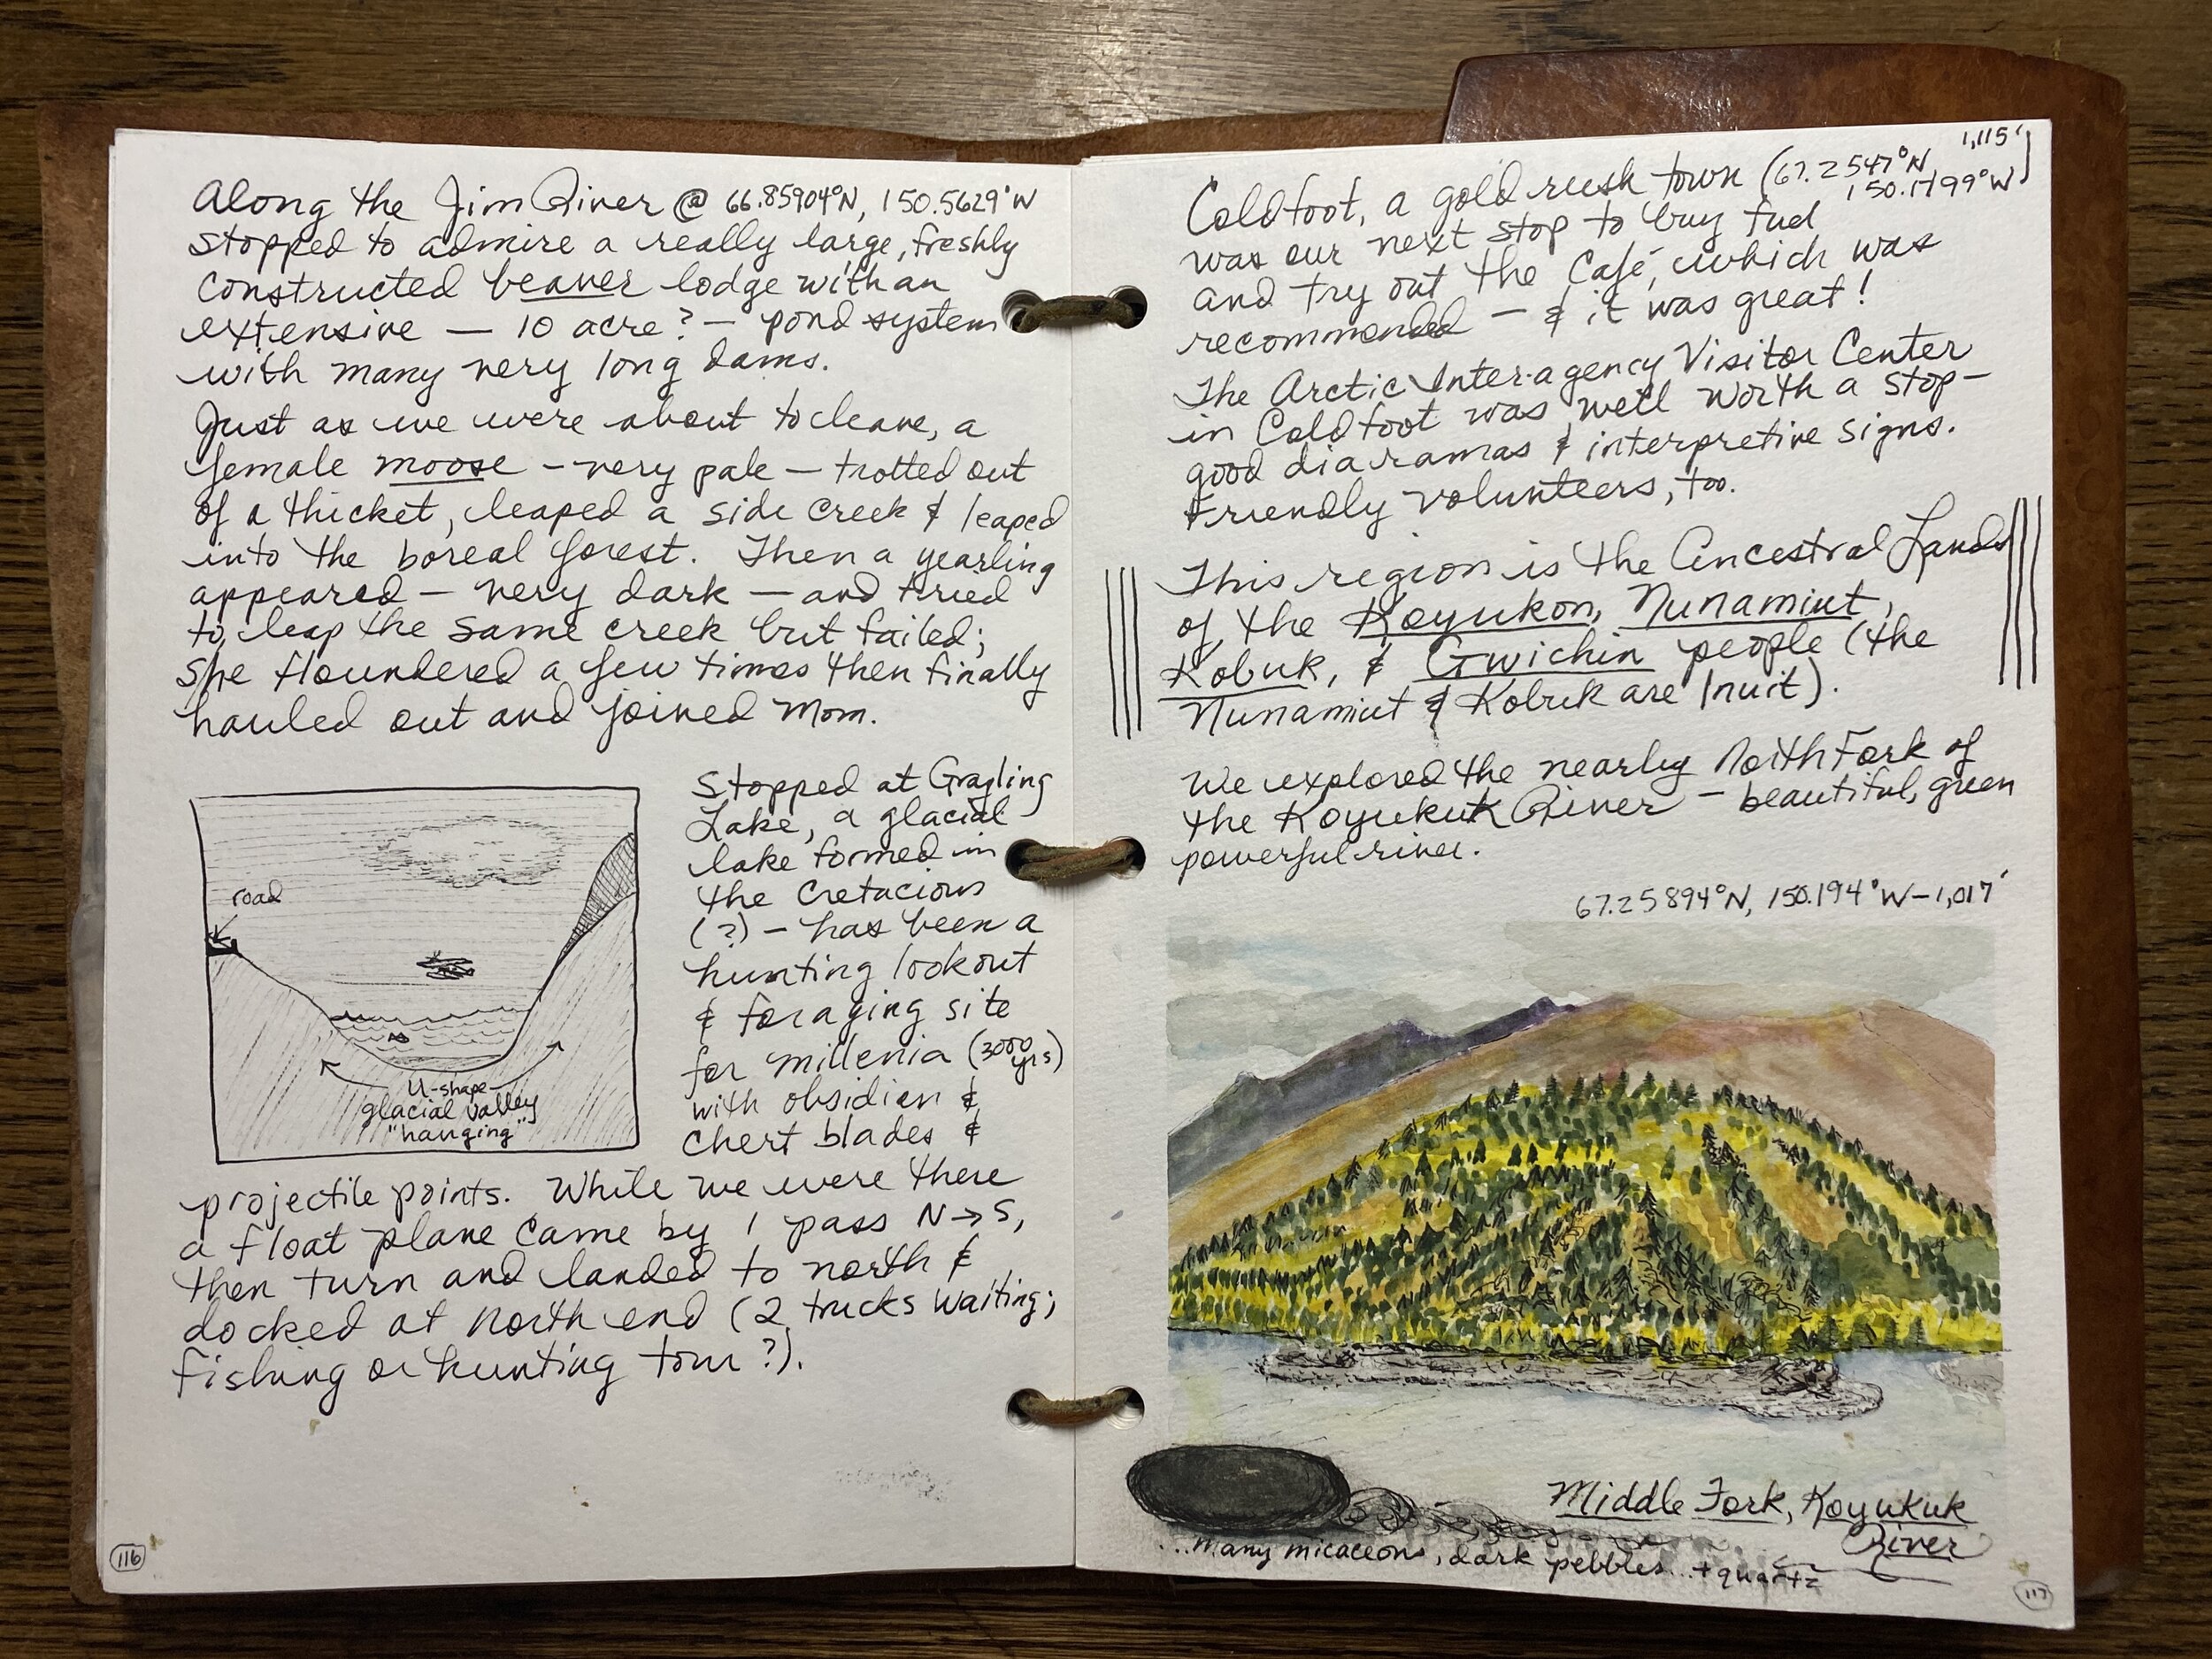 Along the Jim River @ 66.85904°N, 150.5629°W
stopped to admire a really large, freshly
constructed beaver lodge with an
extensive — 10 acre? — pond system
with many very long dams.
Just as we were about to leave, a
female moose - very pale - trotted out
of a thicket, leaped a side creek & leaped
into the boreal forest. Then a yearling
appeared - very dark - and tried
to leap the same creek but failed;
she floundered a few times then finally
hauled out and joined Mom.
road
U-shape
glacial valley
"hanging"
Stopped at Grayling
Lake, a glacial
lake formed in
the Cretacious
(?) - has been a
hunting lookout
& foraging site
for millenia (3000 yrs)
with obsidian &
chert blades &
projectile points. While we were there
a float plane came by 1 pass N→S,
then turn and landed to north &
docked at north end (2 trucks waiting;
fishing or hunting tour?).
116
Coldfoot, a gold rush town (67.2547°N, 1,115'
150.1799°W)
was our next stop to buy fuel
and try out the Café, which was
recommended - & it was great!
The Arctic Interagency Visitor Center
in Coldfoot was well worth a stop -
good diaramas & interpretive signs.
Friendly volunteers, too.
This region is the Ancestral Lands
of the Koyukon, Nunamiut,
Kobuk, & Gwichin people (the
Nunamiut & Kobuk are Inuit).
We explored the nearby North Fork of
the Koyukuk River - beautiful, green
powerful river.
67.25894°N, 150.194°W - 1,017'
Middle Fork, Koyukuk
River
...many micaceous, dark pebbles...+ quartz
117